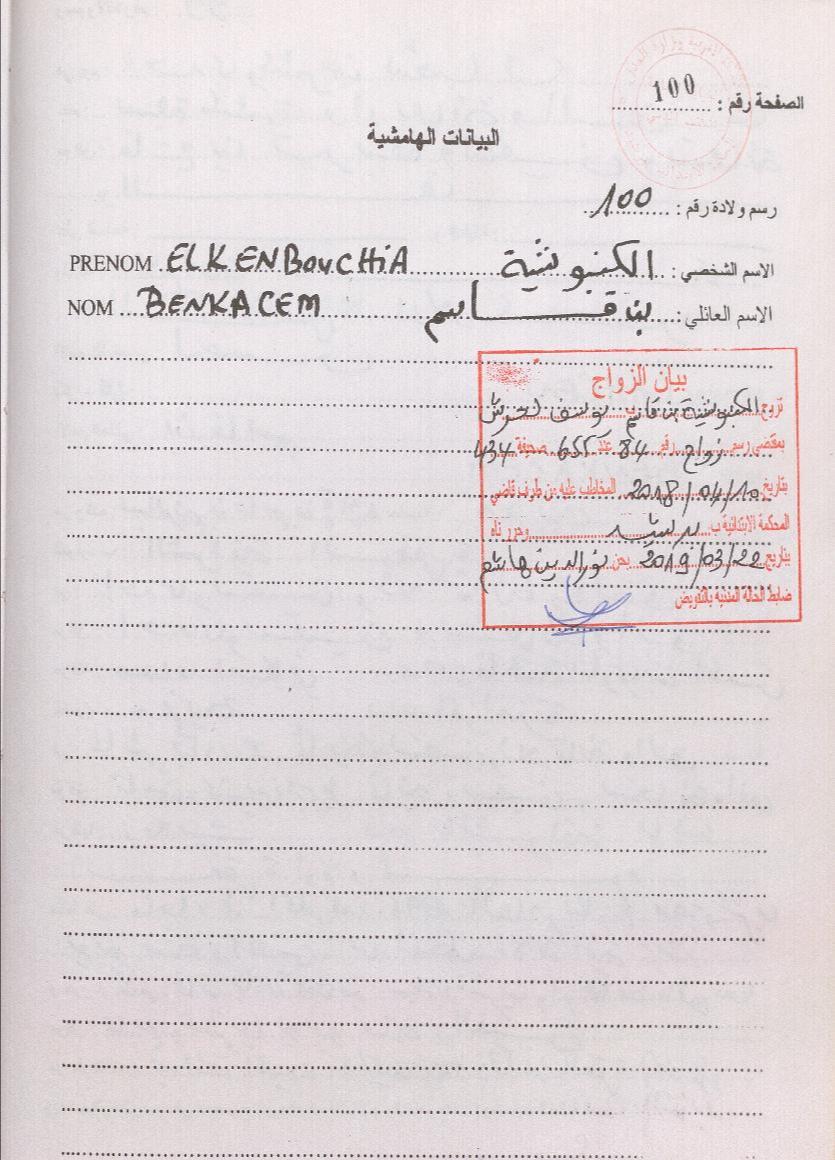 الصفحة رقم : 100
البيانات الهامشية
رسم ولادة رقم : 100
PRENOM ELKENBOUCHIA الاسم الشخصي : الكنبوشية
NOM BENKACEM الاسم العائلي : بن قاسم
بيان الزواج
تزوج الكنبوشية بن قاسم ب يوسف لحرش
بمقتضى رسم زواج رقم 84 عدد 655 صحيفة 434
بتاريخ 2018/04/10 المخاطب عليه من طرف قاضي
المحكمة الابتدائية ب برشيد وحررناه
بتاريخ 2019/03/22 نحن نورالدين هاشم
ضابط الحالة المدنية بالتفويض